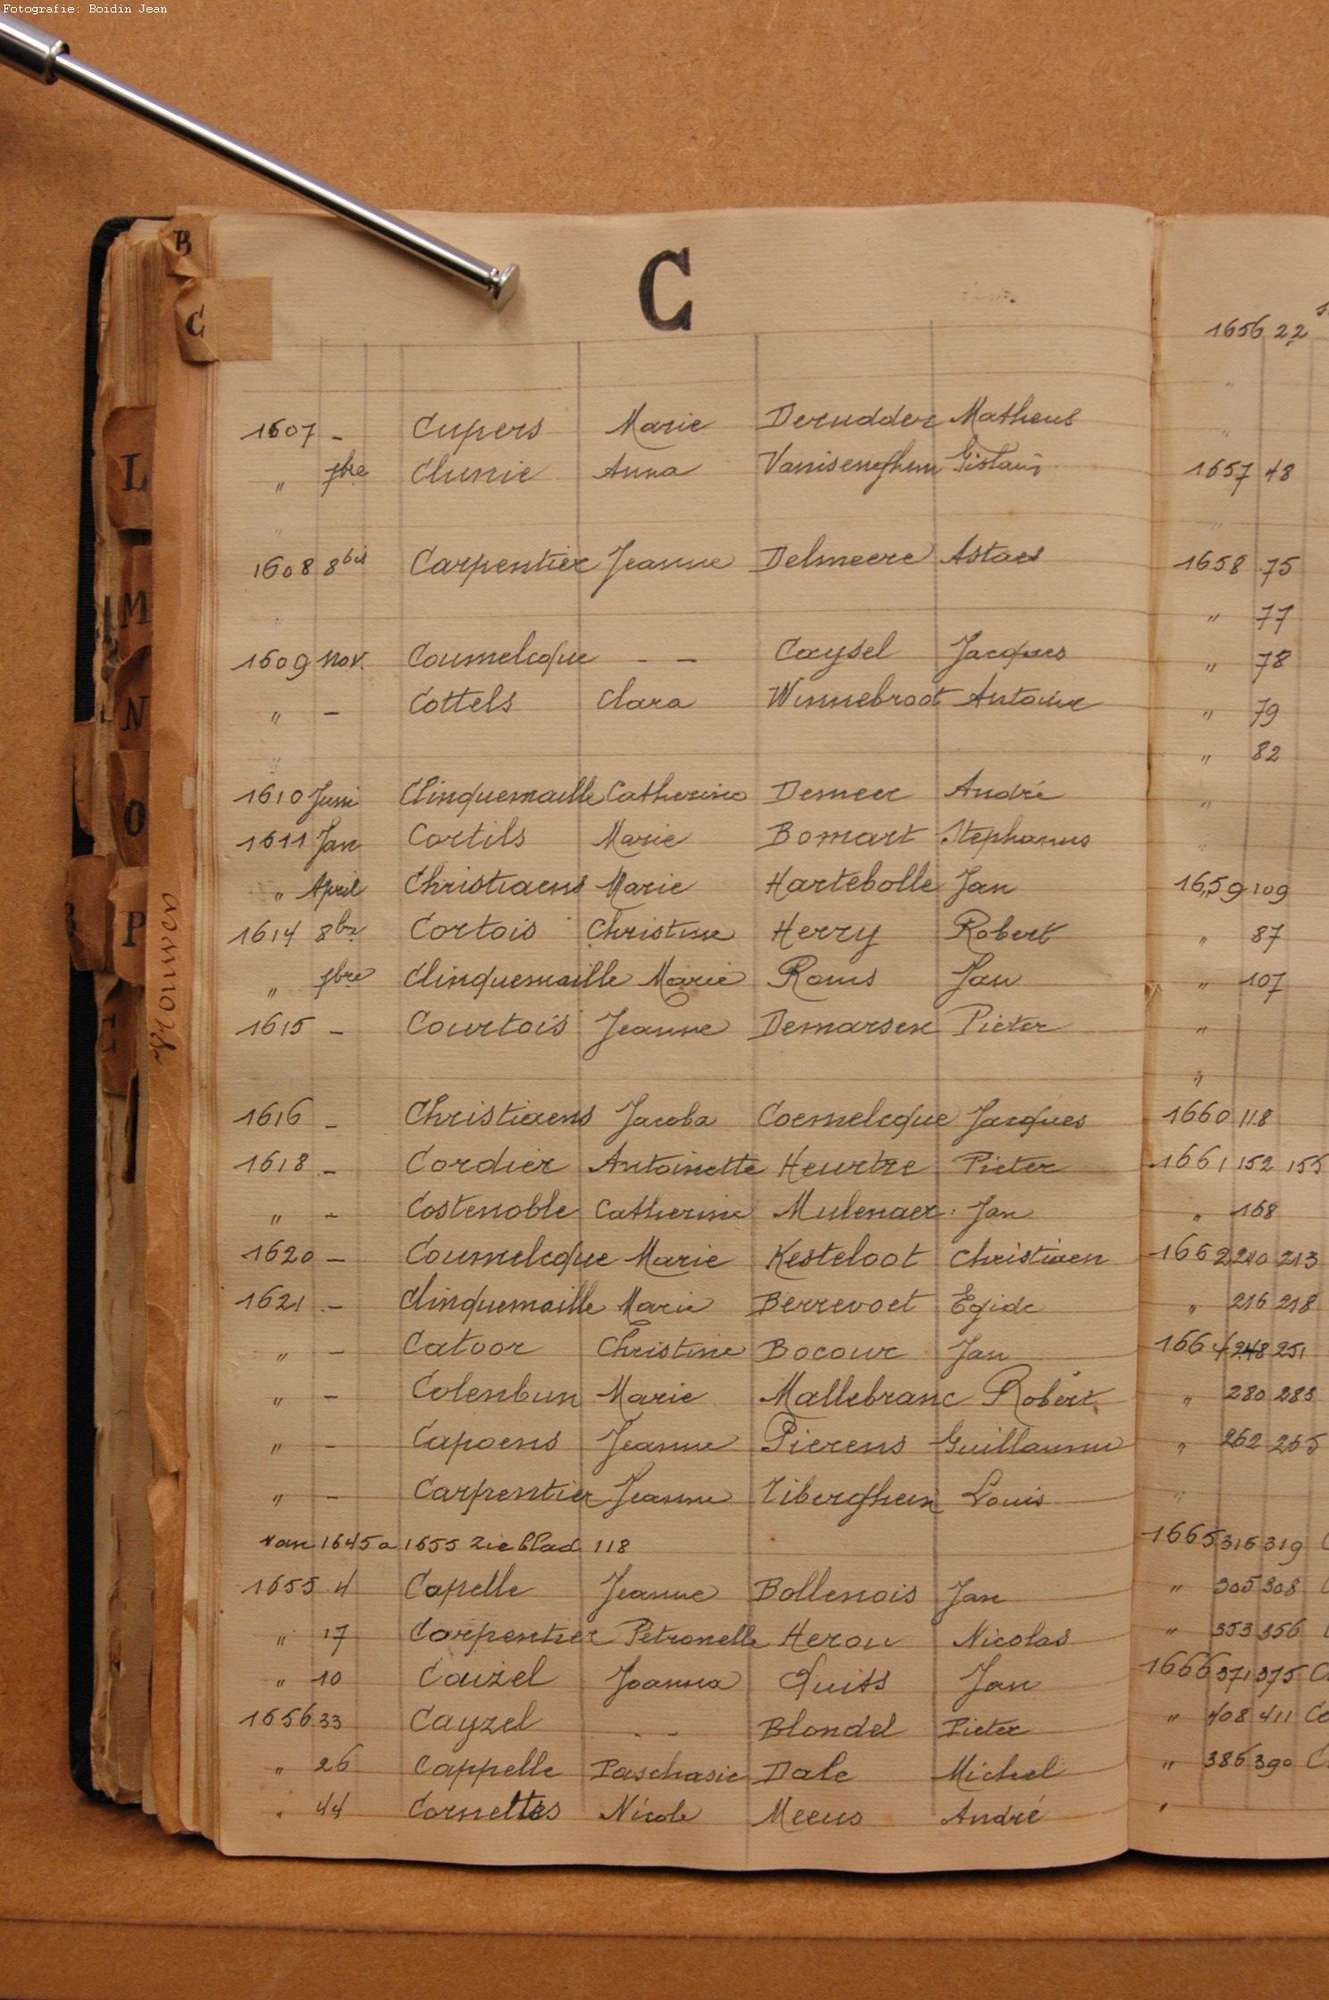 Fotografie: Boidin Jean
B
C
C
L
M
N
O
P
Vrouwen
1607 - Cupers Marie Derudder Matheus
" 9bre Clunie Anna Vaniseneghem Gislain
1608 8bis Carpentier Jeanne Delmeere Astaes
1609 Nov. Coumelcque - - Caysel Jacques
" - Cottels Clara Winnebroot Antoine
1610 Juni Clinquemaille Catherine Demeer André
1611 Jan Cortils Marie Bomart Stephanus
" April Christiaens Marie Hartebolle Jan
1614 8br Cortois Christine Herry Robert
" 9bre Clinquemaille Marie Roms Jan
1615 - Courtois Jeanne Demarsex Pieter
1616 - Christiaens Jacoba Coemelcque Jacques
1618 - Cordier Antoinette Heurtre Pieter
" - Costenoble Catherine Mulenaer Jan
1620 - Coumelcque Marie Kesteloot Christiaen
1621 - Clinquemaille Marie Berrevoet Egide
" - Catoor Christine Bocour Jan
" - Colenbun Marie Mallebranc Robert
" - Capoens Jeanne Pierens Guillaume
" - Carpentier Jeanne Tiberghein Louis
van 1645 a 1655 zie blad 118
1655 4 Capelle Jeanne Bollenois Jan
" 17 Carpentier Petronelle Herou Nicolas
" 10 Couzel Joanna Quits Jan
1656 33 Cayzel - - Blondel Pieter
" 26 Cappelle Paschasie Dale Michel
" 44 Cornettes Nicole Meeus André
1656 22
"
"
1657 48
"
1658 75
" 77
" 78
" 79
" 82
"
"
1659 109
" 87
" 107
"
"
1660 118
1661 152 155
" 168
1662 210 213
" 216 218
1664 248 251
" 280 283
" 262 265
"
1665 316 319
" 305 308
" 353 356
1666 371 375
" 408 411
" 386 390
"